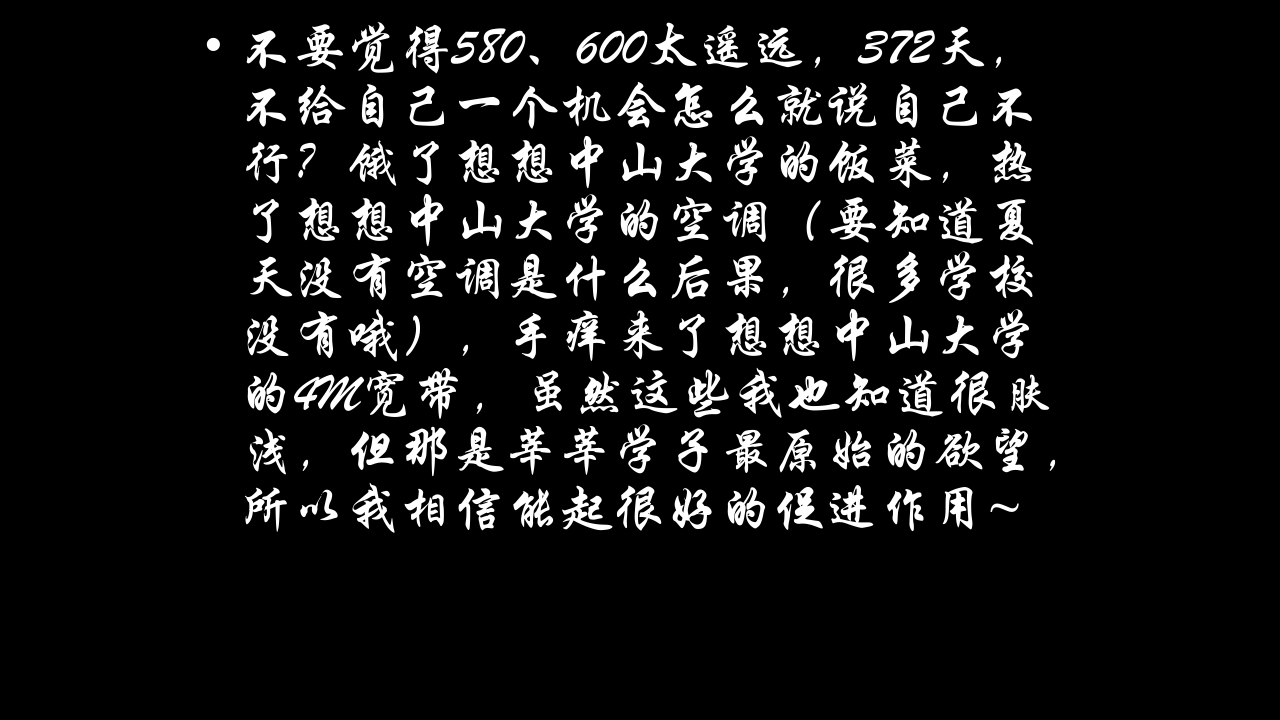 • 不要觉得580、600太遥远，372天，
不给自己一个机会怎么就说自己不
行？饿了想想中山大学的饭菜，热
了想想中山大学的空调（要知道夏
天没有空调是什么后果，很多学校
没有哦），手痒来了想想中山大学
的4M宽带，虽然这些我也知道很肤
浅，但那是莘莘学子最原始的欲望，
所以我相信能起很好的促进作用~